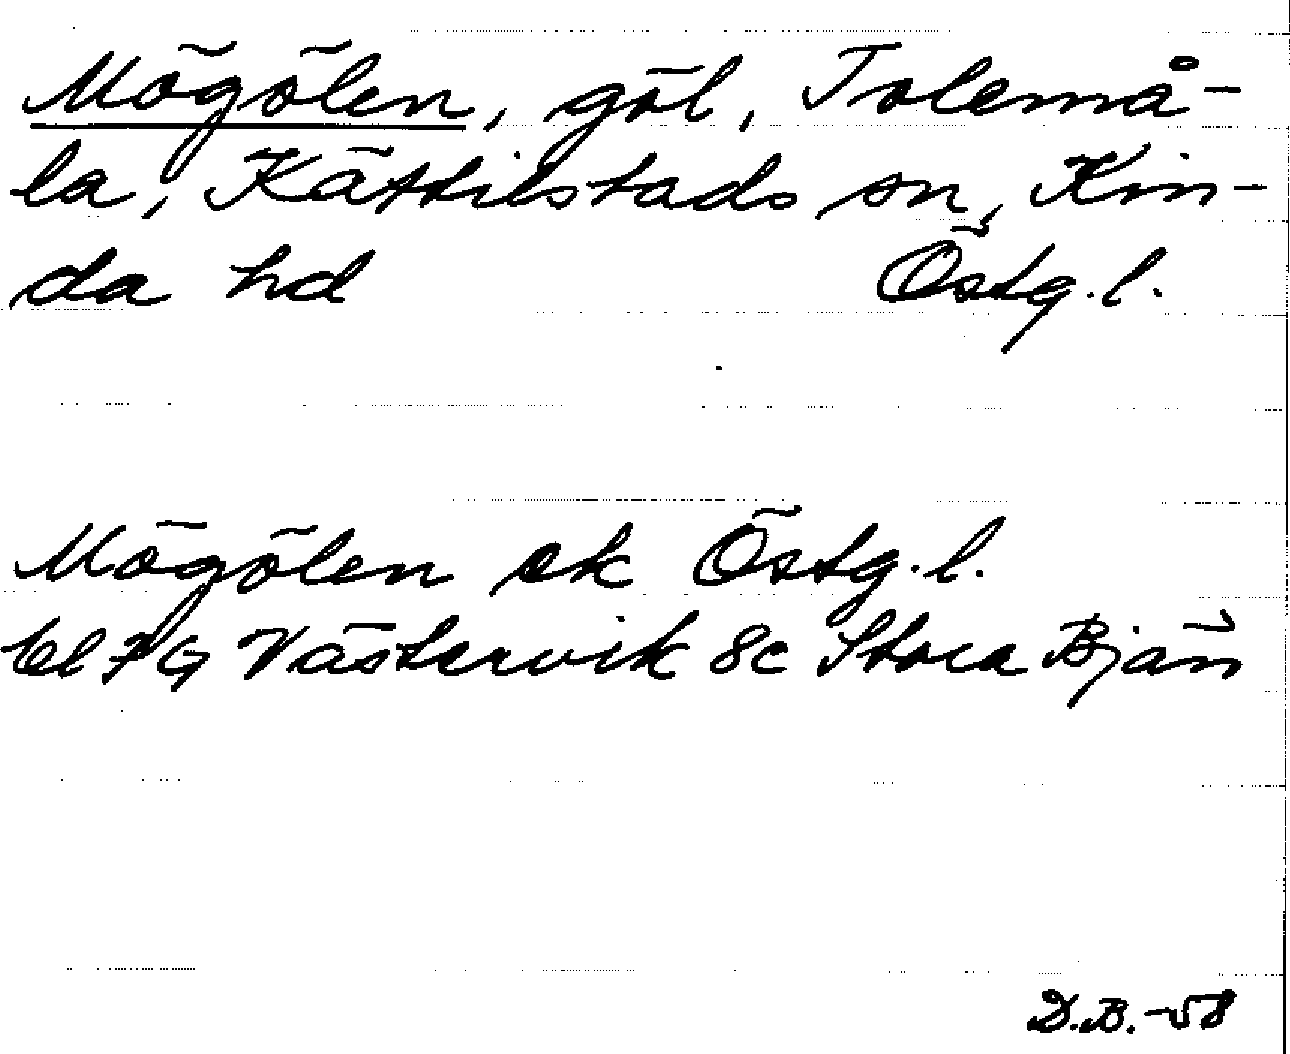 Mögölen, göl, Tolemå-
la, Kättilstads sn, Kin-
da hd Östg.l.
Mögölen ek Östg.l.
bl 7G Västervik 8c Stora Bjän
D.B.-58